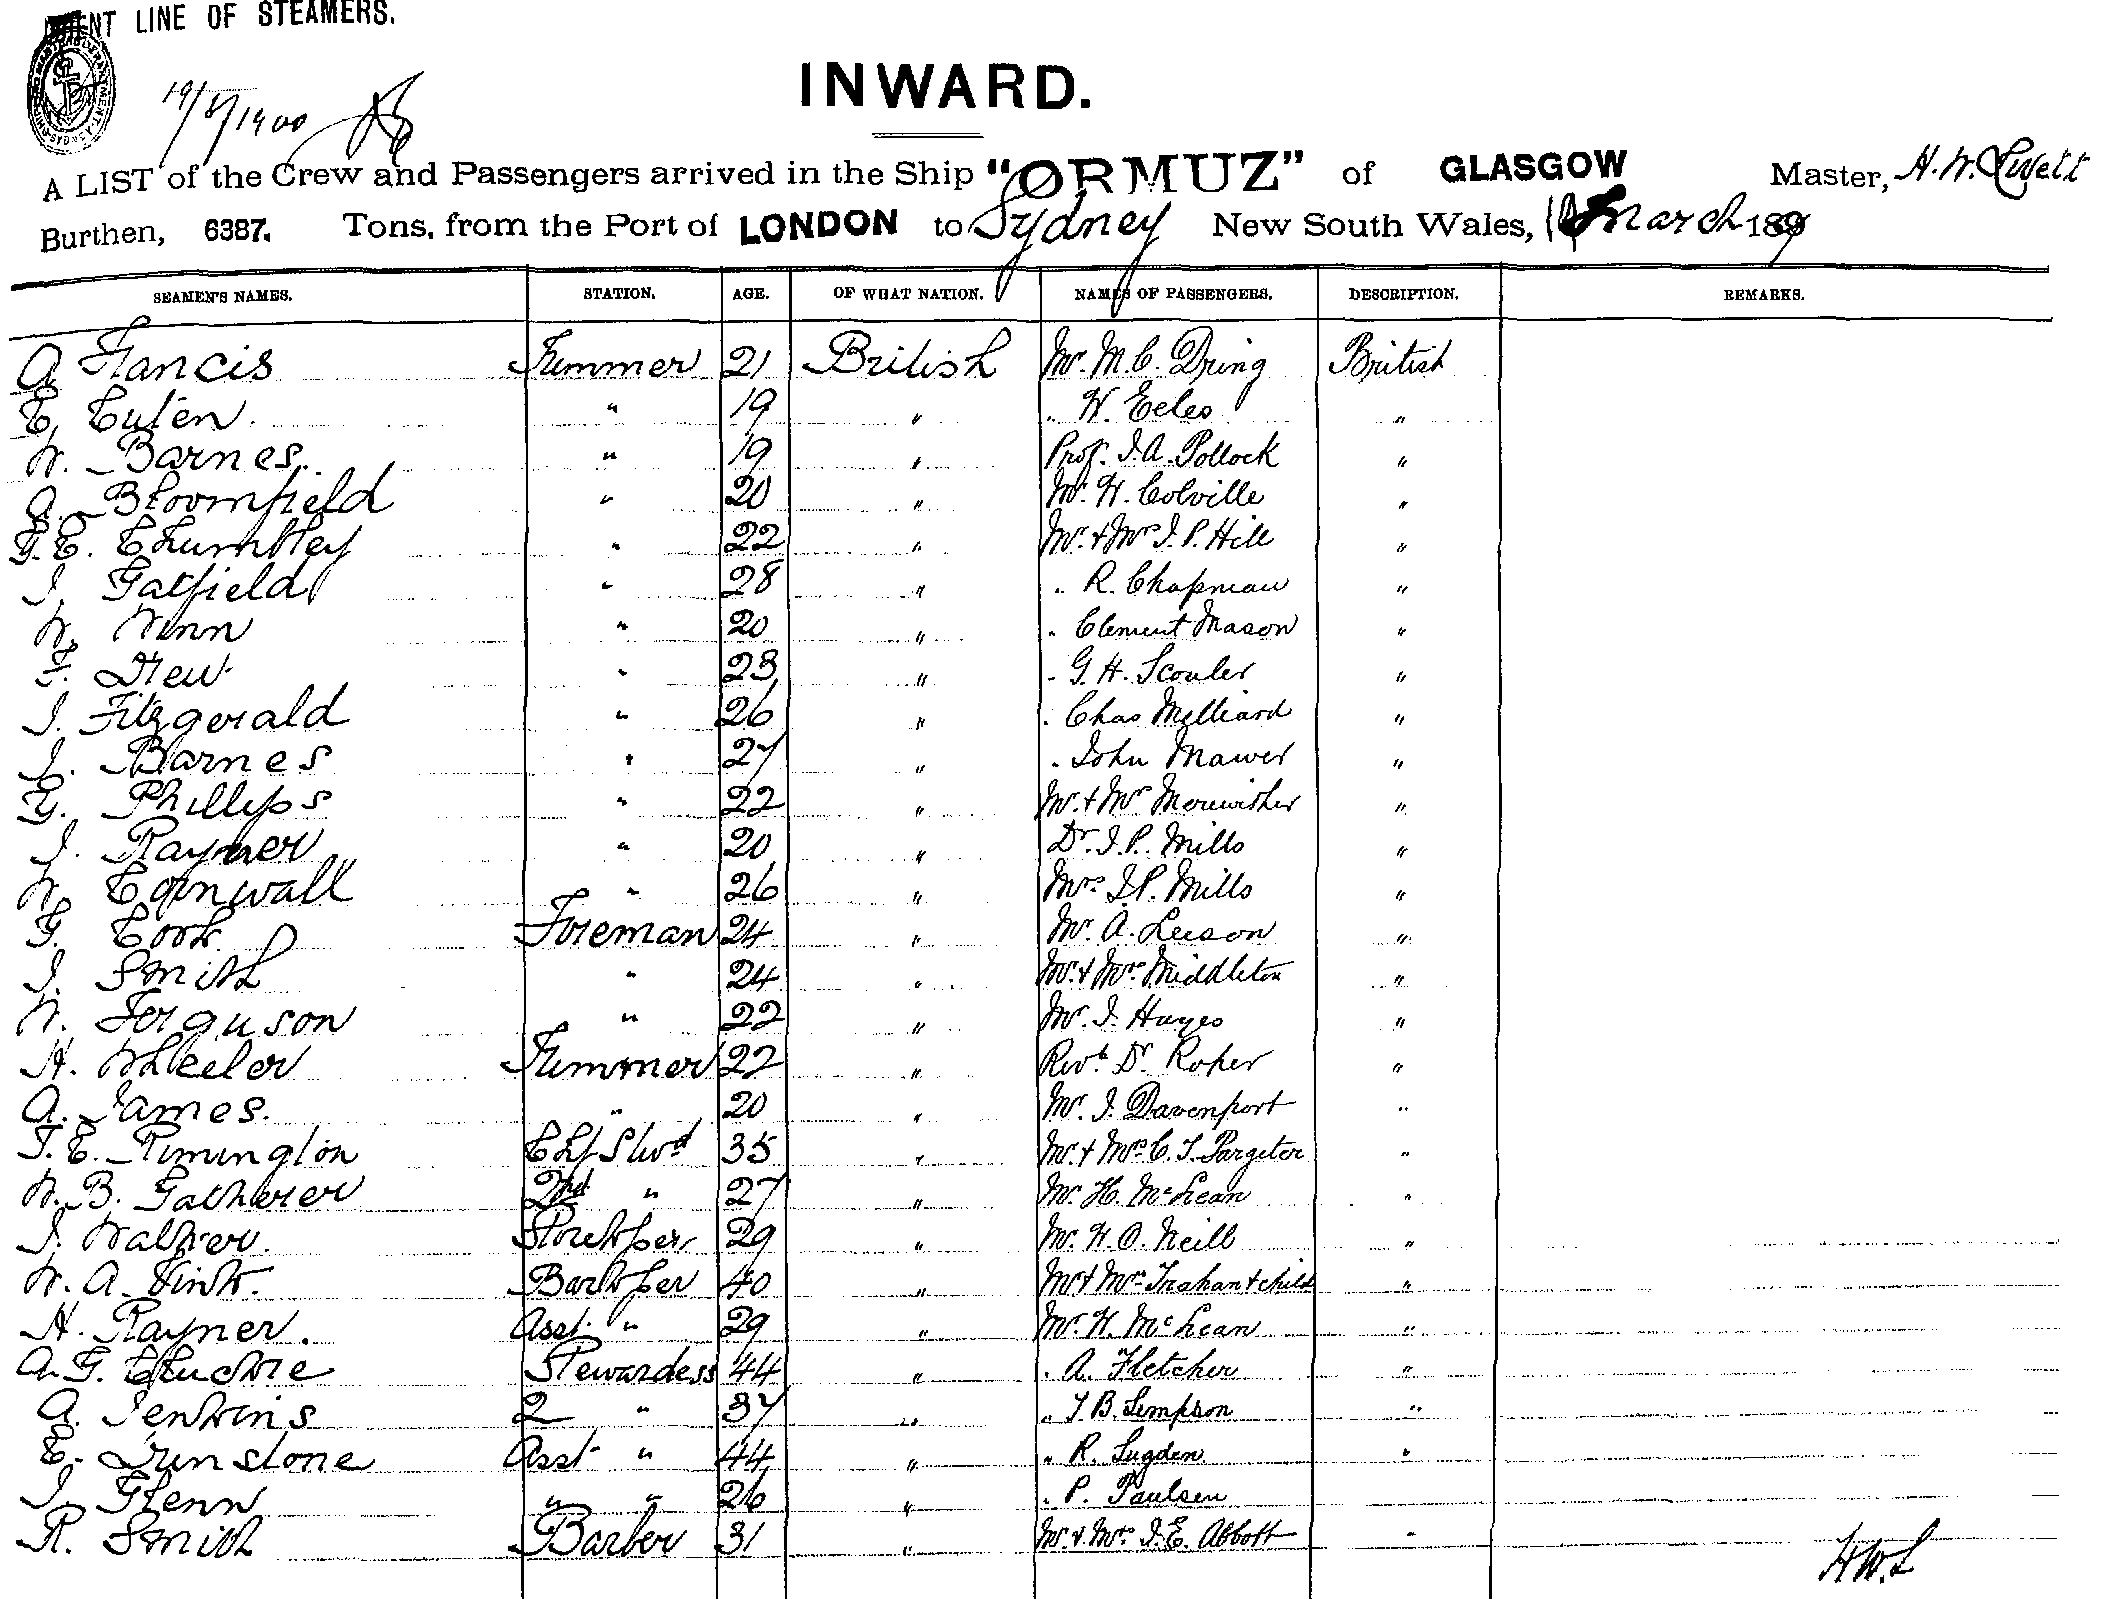 LINE OF STEAMERS.
INWARD.
A LIST of the Crew and Passengers arrived in the Ship "ORMUZ" of GLASGOW Master,
Burthen, 6387. Tons, from the Port of LONDON to Sydney New South Wales, March 189
SEAMEN'S NAMES. STATION. AGE. OF WHAT NATION. NAMES OF PASSENGERS. DESCRIPTION. REMARKS.
A Francis Trimmer 21 British Mr. M. C. Dring British
C. Cuten. " 19 " " W. Eeles "
W. Barnes. " 19 " Prof. J. A. Pollock "
A. Bloomfield " 20 " Mr. H. Colville "
G. E. Chumbley " 22 " Mr. & Mrs J. P. Hill "
J. Gatfield " 28 " " R. Chapman "
W. Winn " 20 " " Clement Mason "
F. Drew " 23 " " G. H. Scouler "
J. Fitzgerald " 26 " " Chas Milliard "
J. Barnes " 27 " " John Mawer "
G. Phillips " 22 " Mr. & Mrs Merewether "
J. Rayner " 20 " Dr. J. P. Mills "
W. Cornwall " 26 " Mrs J. P. Mills "
G. Cook Foreman 24 " Mr. A. Leeson "
J. Smith " 24 " Mr. & Mrs Middleton "
W. Ferguson " 22 " Mr. J. Hayes "
H. Wheeler Trimmer 22 " Revd. Dr. Roper "
A. James. " 20 " Mr. J. Davenport "
T. E. Rimington Chf Stwd 35 " Mr. & Mrs C. T. Pargeter "
W. B. Gatherer 2nd " 27 " Mr. H. McLean "
J. Walker. Storekper 29 " Mr. H. O. Neill "
W. A. Vink. Barkper 40 " Mr & Mrs Trahan & child "
H. Rayner. Asst " 29 " Mr. H. McLean "
A. G. Stewardess 44 " " A. Fletcher "
A. Jenkins 2 " 37 " " T. B. Simpson "
C. Dunstone Asst " 44 " " R. Sugden "
J. Glenn " " 26 " " P. Paulsen
R. Smith Barber 31 " Mr. & Mrs J. E. Abbott "
H.W.L